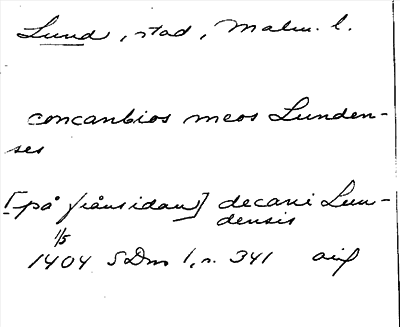 Lund, stad, Malm. l.
concanbios meos Lunden-
ses
[på frånsidan] decani Lun-
densis
1/5
1404 SDm 1, n. 341 avs